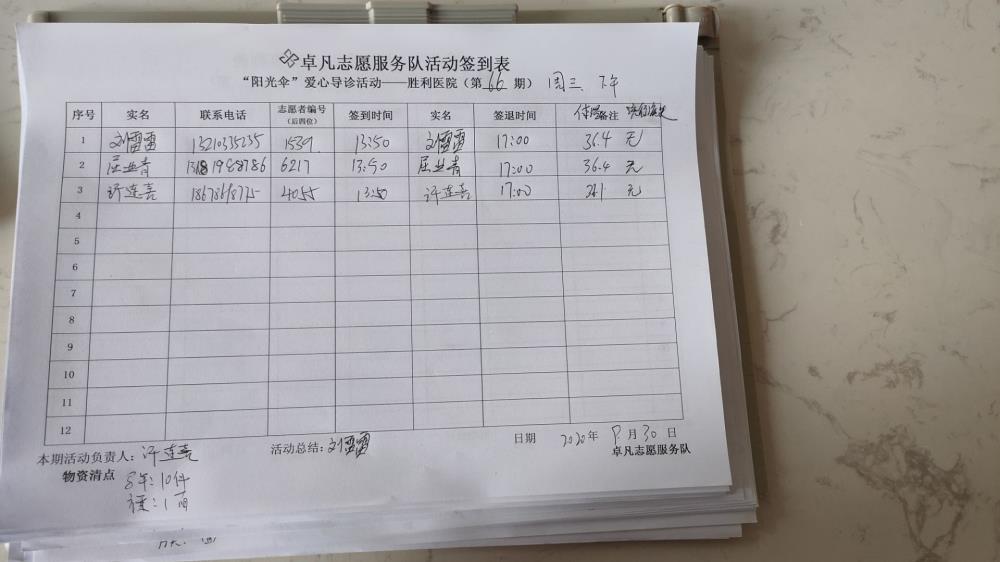 卓凡志愿服务队活动签到表
“阳光伞”爱心导诊活动——胜利医院（第66期） 周三 下午
序号 实名 联系电话 志愿者编号（后四位） 签到时间 实名 签退时间 体温备注
1 刘雷雷 13210335235 1539 13:50 刘雷雷 17:00 36.4 无
2 屈业青 6217 13:50 屈业青 17:00 36.4 无
3 许连喜 4055 13:50 许连喜 17:00 无
4
5
6
7
8
9
10
11
12
本期活动负责人：许连喜 活动总结：刘雷雷 日期 2020年 月30日
物资清点 卓凡志愿服务队
10件